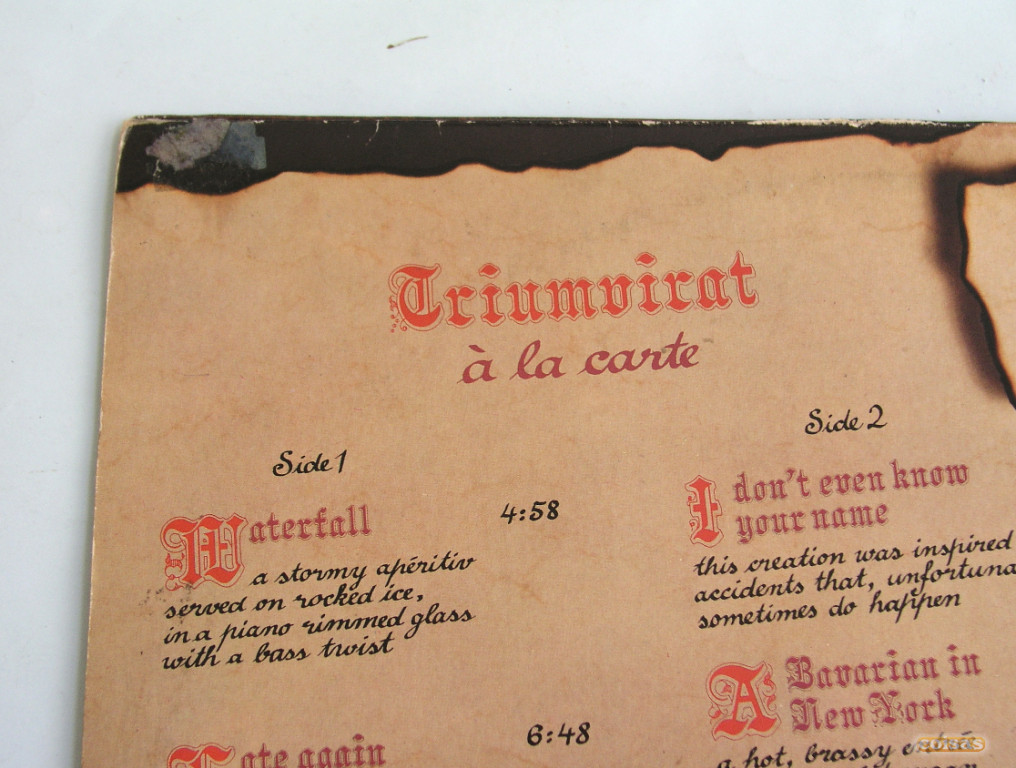 Triumvirat
à la carte
Side 1
Waterfall 4:58
a stormy apéritiv
served on rocked ice,
in a piano rimmed glass
with a bass twist
Late again 6:48
Side 2
I don't even know
your name
this creation was inspired
accidents that, unfortuna
sometimes do happen
A Bavarian in
New York
a hot, brassy entrée